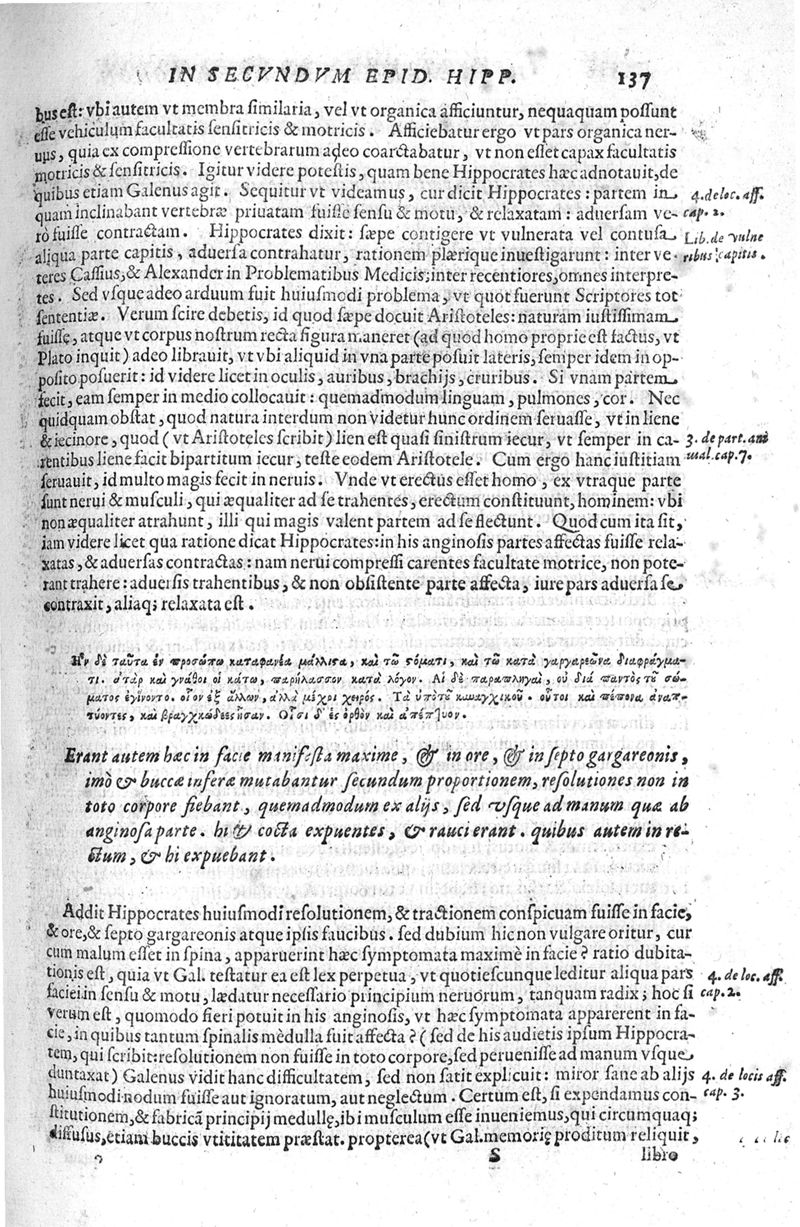 IN SECVNDVM EPID. HIPP. 137
bus est: vbi autem vt membra similaria, vel vt organica afficiuntur, nequaquam possunt
esse vehiculum facultatis sensitricis & motricis. Afficiebatur ergo vt pars organica ner-
uus, quia ex compressione vertebrarum adeo coarctabatur, vt non esset capax facultatis
motricis & sensitricis. Igitur videre potestis, quam bene Hippocrates hæc adnotauit, de
quibus etiam Galenus agit. Sequitur vt videamus, cur dicit Hippocrates: partem in
4. de loc. aff.
quam inclinabant vertebræ priuatam fuisse sensu & motu, & relaxatam: aduersam ve-
cap. 2.
rò fuisse contractam. Hippocrates dixit: sæpe contigere vt vulnerata vel contusa
Lib. de vulne
aliqua parte capitis, aduersa contrahatur, rationem plærique inuestigarunt: inter ve-
ribus capitis.
teres Cassius, & Alexander in Problematibus Medicis; inter recentiores, omnes interpre-
tes. Sed vsque adeo arduum fuit huiusmodi problema, vt quot fuerunt Scriptores tot
sententiæ. Verum scire debetis, id quod sæpe docuit Aristoteles: naturam iustissimam
fuisse, atque vt corpus nostrum recta figura maneret (ad quod homo proprie est factus, vt
Plato inquit) adeo librauit, vt vbi aliquid in vna parte posuit lateris, semper idem in op-
posito posuerit: id videre licet in oculis, auribus, brachijs, cruribus. Si vnam partem
fecit, eam semper in medio collocauit: quemadmodum linguam, pulmones, cor. Nec
quidquam obstat, quod natura interdum non videtur hunc ordinem seruasse, vt in liene
& iecinore, quod (vt Aristoteles scribit) lien est quasi sinistrum iecur, vt semper in ca-
3. de part. ani
rentibus liene facit bipartitum iecur, teste eodem Aristotele. Cum ergo hanc iustitiam
mal. cap. 7.
seruauit, id multo magis fecit in neruis. Vnde vt erectus esset homo, ex vtraque parte
sunt nerui & musculi, qui æqualiter ad se trahentes, erectum constituunt, hominem: vbi
non æqualiter atrahunt, illi qui magis valent partem ad se flectunt. Quod cum ita sit,
iam videre licet qua ratione dicat Hippocrates: in his anginosis partes affectas fuisse rela-
xatas, & aduersas contractas: nam nerui compressi carentes facultate motrice, non pote-
rant trahere: aduersis trahentibus, & non obsistente parte affecta, iure pars aduersa se
contraxit, aliaq; relaxata est.
Ην δὲ ταῦτα ἐν προσώπω καταφανέα μάλλιςα, καὶ τῶ ςόματι, καὶ τῶ κατὰ γαργαρεῶνα διαφράγμα-
τι. ἀτὰρ καὶ γνάθοι οἱ κάτω, παρήλασσον κατὰ λόγον. Αἱ δὲ παραπληγίαι, οὐ διὰ παντὸς τῦ σώ-
ματος ἐγίνοντο. οἷον ἐξ ἄλλων, ἀλλὰ μέχρι χειρός. Τὰ ὑπὸ τῦ κυναγχικοῦ. οὗτοι καὶ πέπονα ἀναπ-
τύοντες, καὶ βραγχώδεες ἦσαν. Οἷσι δ' ἐς ὀρθὸν καὶ ἀπέπτυον.
Erant autem hæc in facie manifesta maxime, & in ore, & in septo gargareonis,
imò & buccæ inferæ mutabantur secundum proportionem, resolutiones non in
toto corpore fiebant, quemadmodum ex alijs, sed vsque ad manum quæ ab
anginosa parte. hi & cocta expuentes, & rauci erant. quibus autem in re-
ctum, & hi expuebant.
Addit Hippocrates huiusmodi resolutionem, & tractionem conspicuam fuisse in facie,
& ore, & septo gargareonis atque ipsis faucibus. sed dubium hic non vulgare oritur, cur
cum malum esset in spina, apparuerint hæc symptomata maximè in facie? ratio dubita-
tionis est, quia vt Gal. testatur ea est lex perpetua, vt quotiescunque leditur aliqua pars
4. de loc. aff.
faciei in sensu & motu, lædatur necessario principium neruorum, tanquam radix; hoc si
cap. 2.
verum est, quomodo fieri potuit in his anginosis, vt hæc symptomata apparerent in fa-
cie, in quibus tantum spinalis mèdulla fuit affecta? (sed de his audietis ipsum Hippocra-
tem, qui scribit: resolutionem non fuisse in toto corpore, sed peruenisse ad manum vsque
duntaxat) Galenus vidit hanc difficultatem, sed non satit explicuit: miror sane ab alijs
4. de locis aff.
huiusmodi nodum fuisse aut ignoratum, aut neglectum. Certum est, si expendamus con-
cap. 3.
stitutionem, & fabricã principij medullę, ibi musculum esse inueniemus, qui circumquaq;
diffusus, etiam buccis vtititatem præstat. propterea (vt Gal. memorię proditum reliquit,
S libro